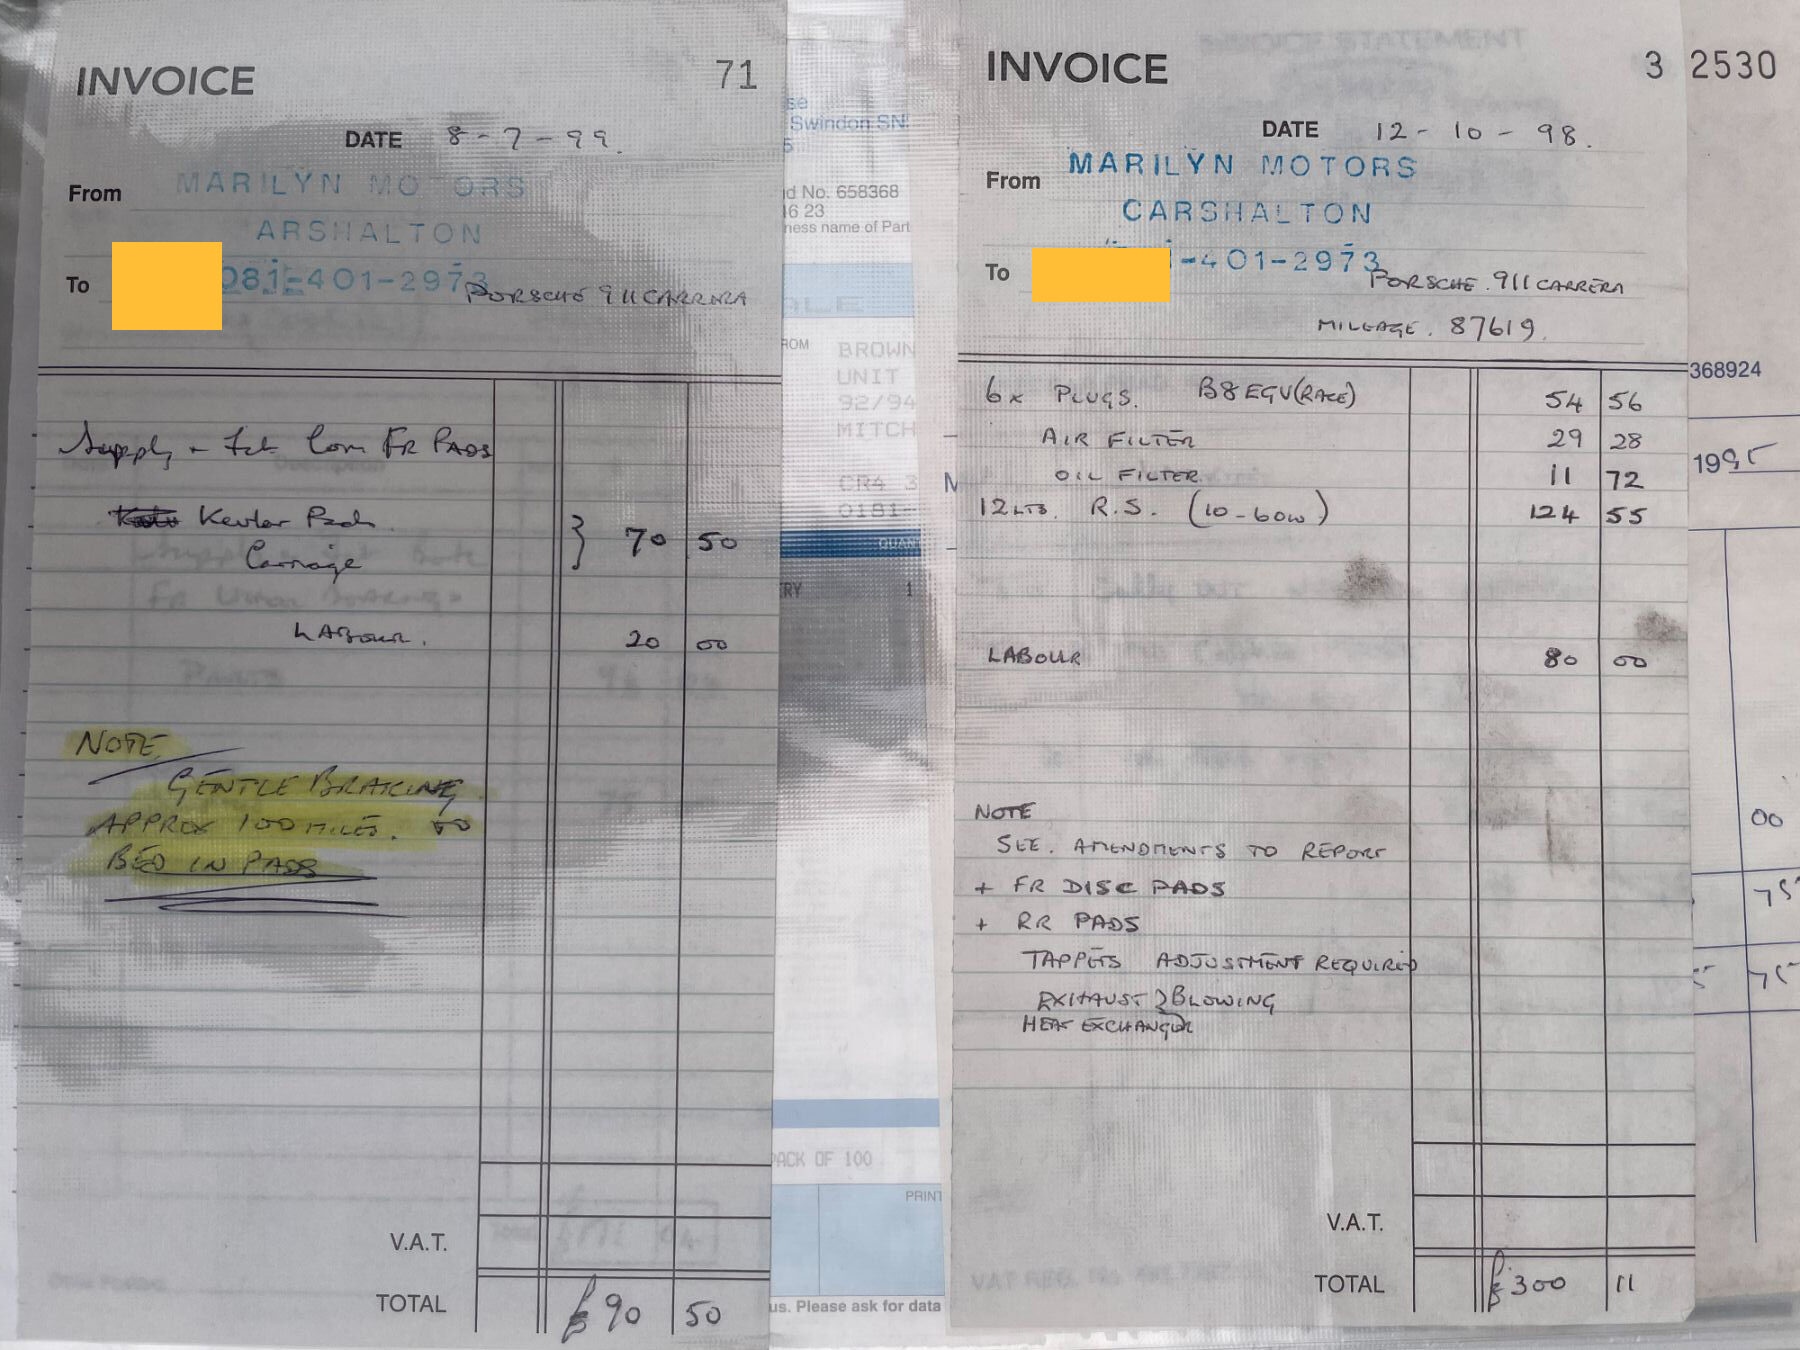 INVOICE 71
DATE 8-7-99.
From MARILYN MO ORS
ARSHALTON
To 081-401-2973
PORSCHE 911 CARRERA
Supply + Fit Com FR PADS
Kevlar Pads
Carriage } 70 50
LABOUR. 20 00
NOTE
GENTLE BRAKING
APPROX 100 MILES. TO
BED IN PADS
V.A.T.
TOTAL £90 50
se
Swindon SN
5
d No. 658368
16 23
ness name of Part
ALE
ROM
BROWN
UNIT
92/94
MITCH
CR4 3
0181-
QUAN
RY 1
PACK OF 100
PRINT
us. Please ask for data
INVOICE 3 2530
DATE 12-10-98.
From MARILYN MOTORS
CARSHALTON
To -401-2973
PORSCHE. 911 CARRERA
MILEAGE. 87619.
6x PLUGS. B8EGV(RACE) 54 56
AIR FILTER 29 28
OIL FILTER 11 72
12LTS. R.S. (10-60W) 124 55
LABOUR 80 00
NOTE
SEE. AMENDMENTS TO REPORT
+ FR DISC PADS
+ RR PADS
TAPPETS ADJUSTMENT REQUIRED
EXHAUST } BLOWING
HEAT EXCHANGER
V.A.T.
TOTAL £300 11
368924
1995
00
75
75